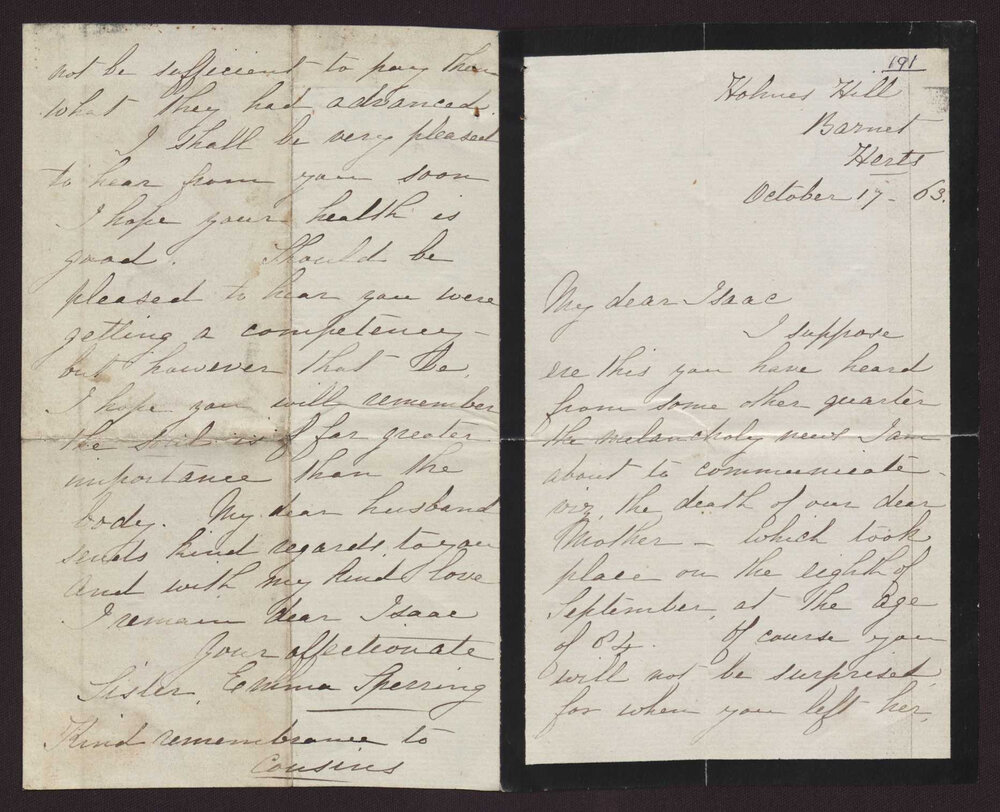 191
Holmes Hill
Barnet
Herts
October 17 - 63.
My dear Isaac
I suppose
ere this you have heard
from some other quarter
the melancholy news I am
about to communicate -
viz. the death of our dear
Mother - which took
place on the eighth of
September, at the age
of 84. Of course you
will not be surprised,
for when you left her,
not be sufficient to pay them
what they had advanced.
I shall be very pleased
to hear from you soon
I hope your health is
good. Should be
pleased to hear you were
getting a competency -
but however that be,
I hope you will remember
the soul is of far greater
importance than the
body. My dear husband
sends kind regards to you
and with my kind love
I remain dear Isaac
Your affectionate
Sister, Emma Sperring
Kind remembrance to
cousins